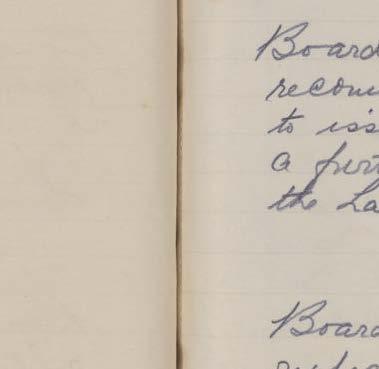 Board
recom
to iss
a furt
the La
Board